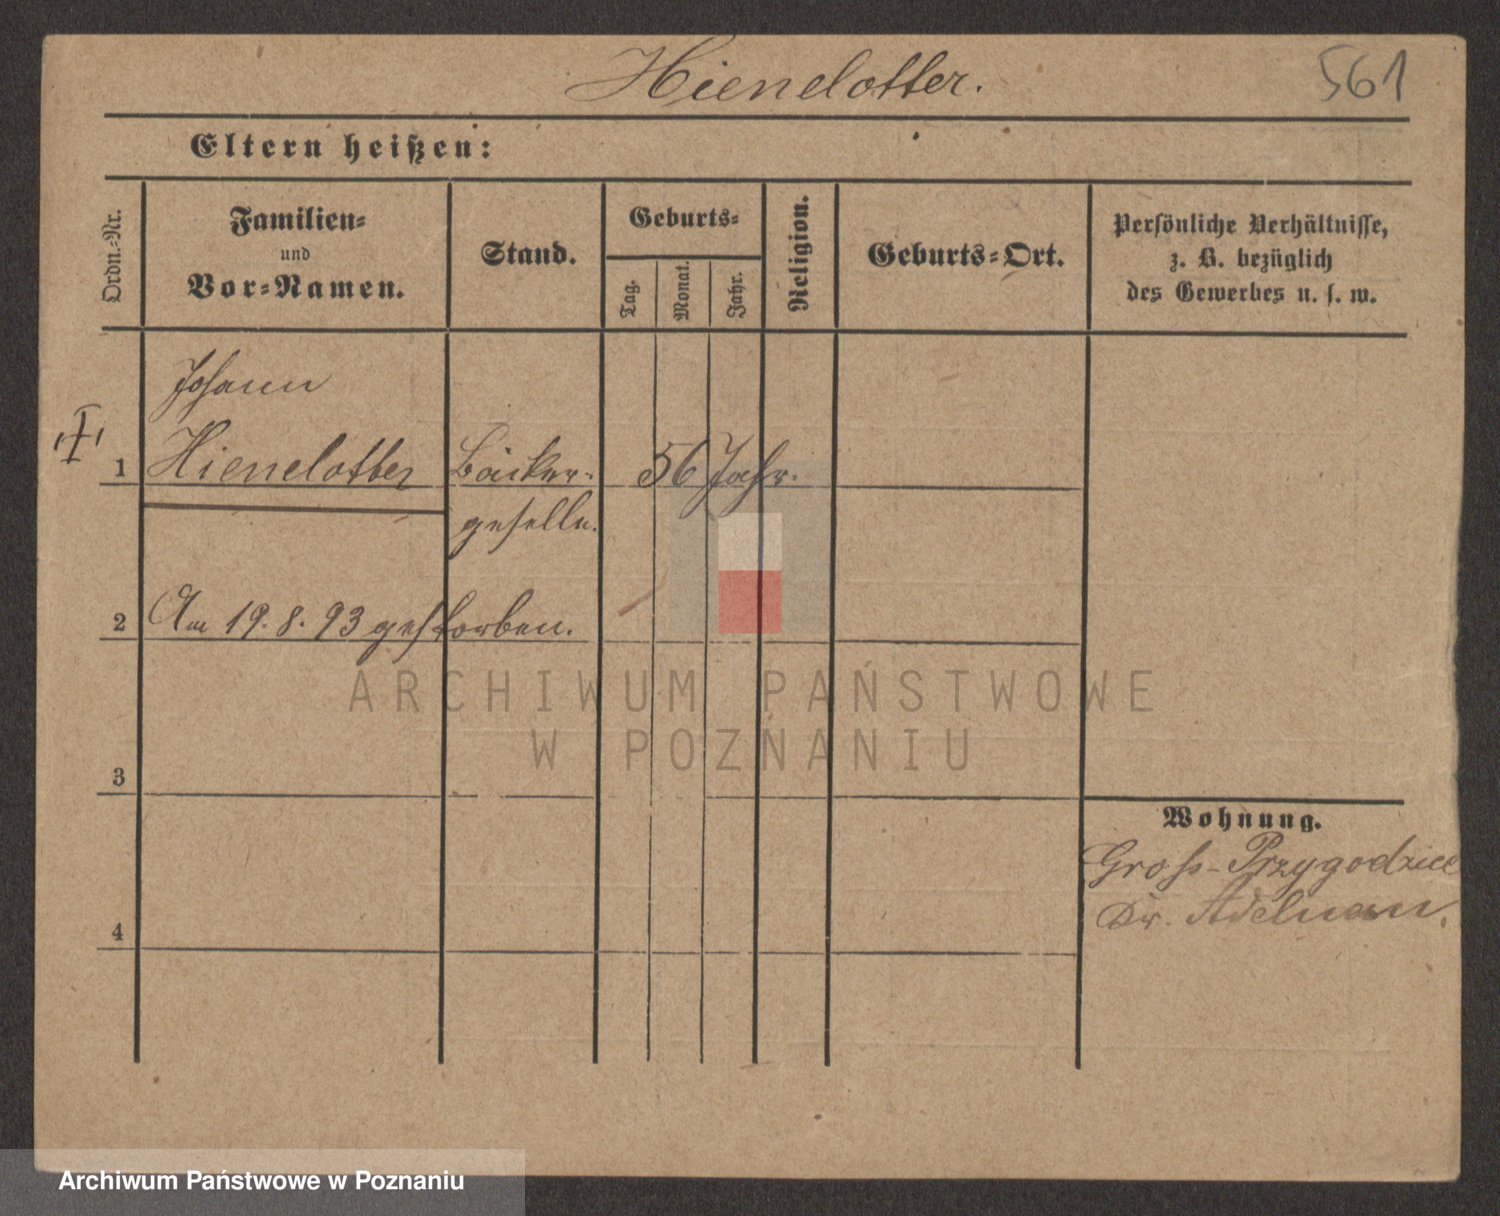 Hienelotter.
561
Eltern heißen:
Ordn.-Nr.
Familien-
und
Vor-Namen.
Stand.
Geburts-
Tag.
Monat.
Jahr.
Religion.
Geburts-Ort.
Persönliche Verhältnisse,
z. B. bezüglich
des Gewerbes u. s. w.
Johann
1 Hienelotter Bäcker- 56 Jahr.
geselle.
2 Am 19. 8. 93 gestorben.
ARCHIWUM PAŃSTWOWE
W POZNANIU
3
Wohnung.
Gross-Przygodzice
Dr. Adelnau.
4
Archiwum Państwowe w Poznaniu